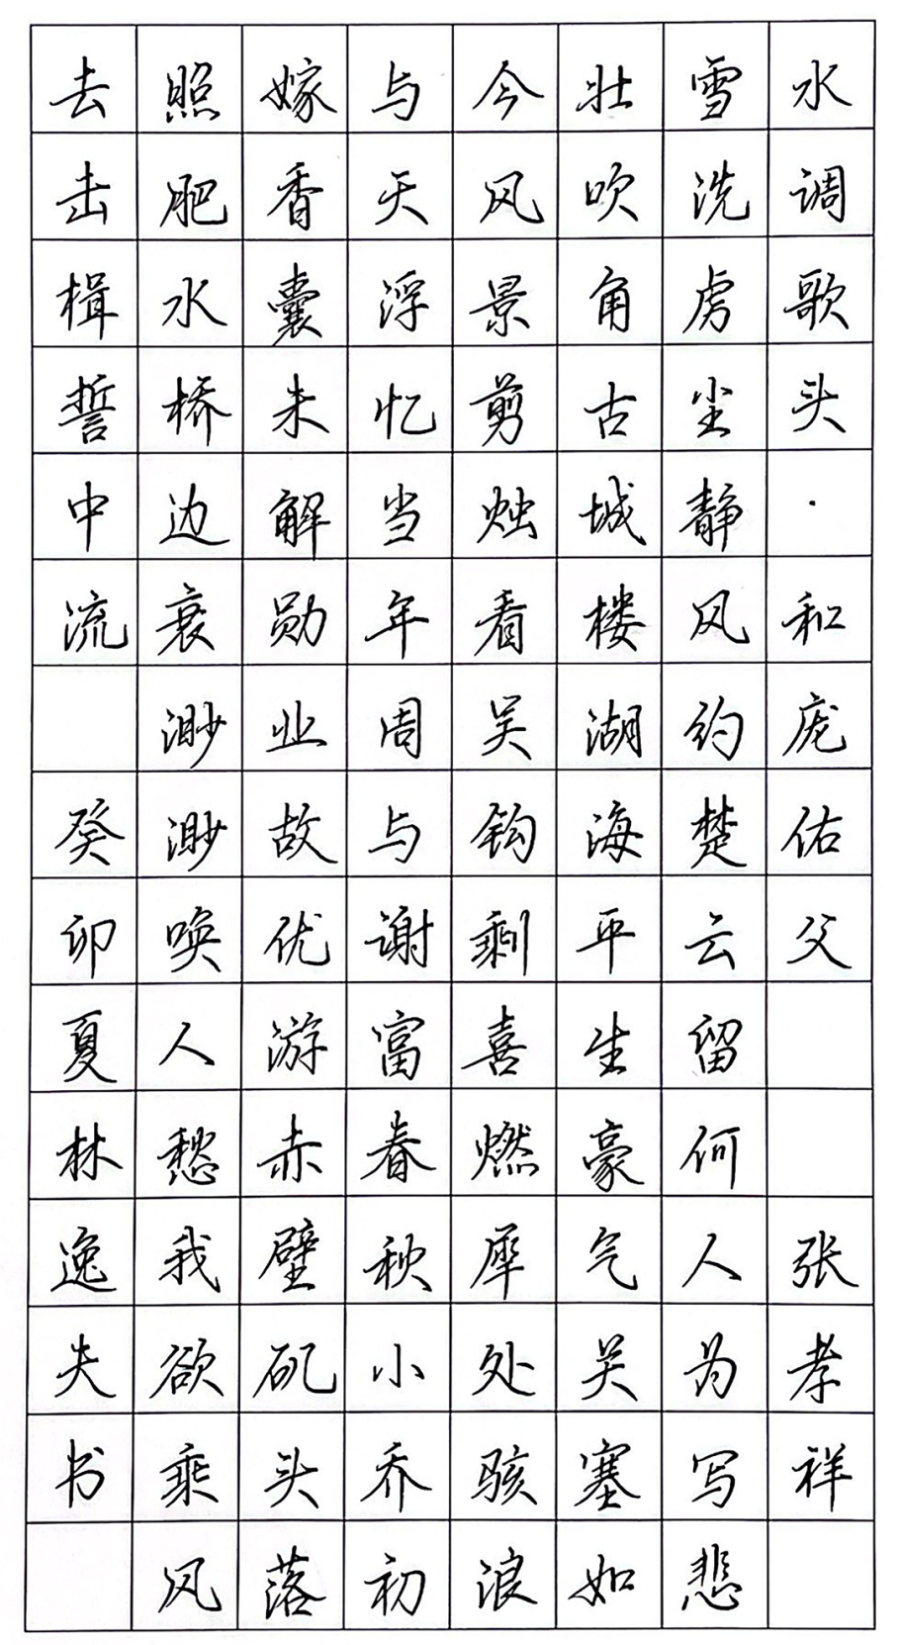 水调歌头·和庞佑父 张孝祥
雪洗虏尘静风约楚云留何人为写悲
壮吹角古城楼湖海平生豪气关塞如
今风景剪烛看吴钩剩喜燃犀处骇浪
与天浮忆当年周与谢富春秋小乔初
嫁香囊未解勋业故优游赤壁矶头落
照肥水桥边衰渺渺唤人愁我欲乘风
去击楫誓中流 癸卯夏林逸夫书